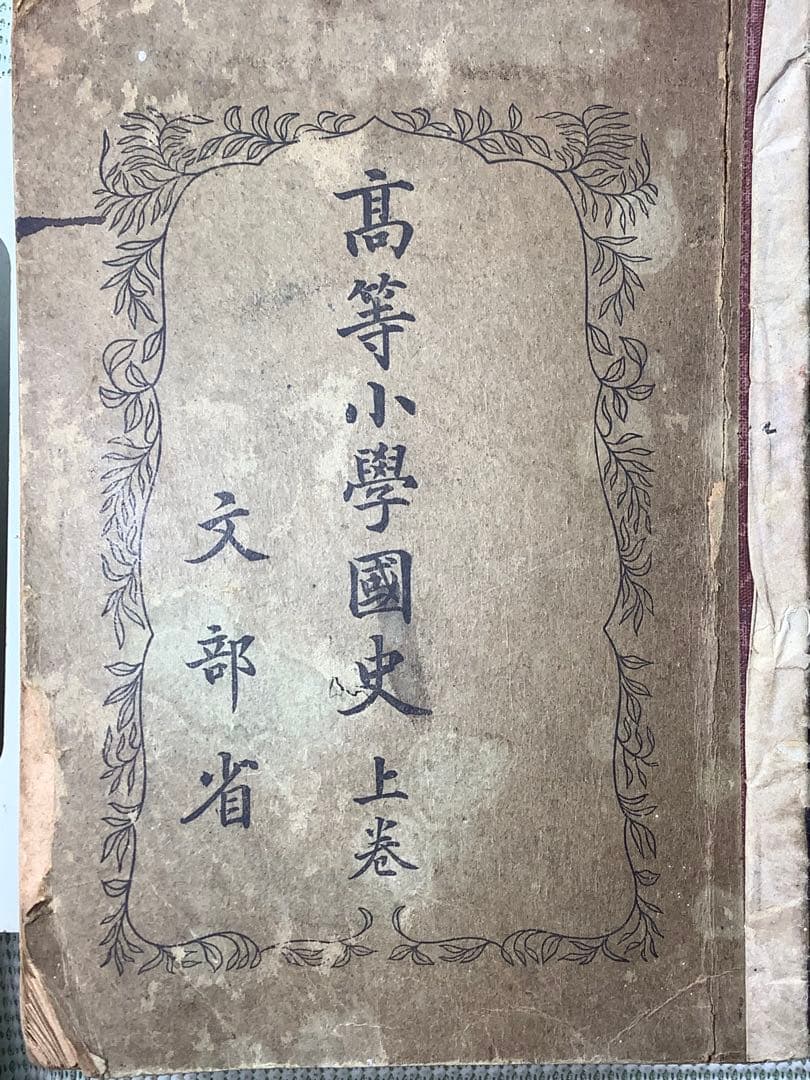 高等小學國史 上卷
文部省